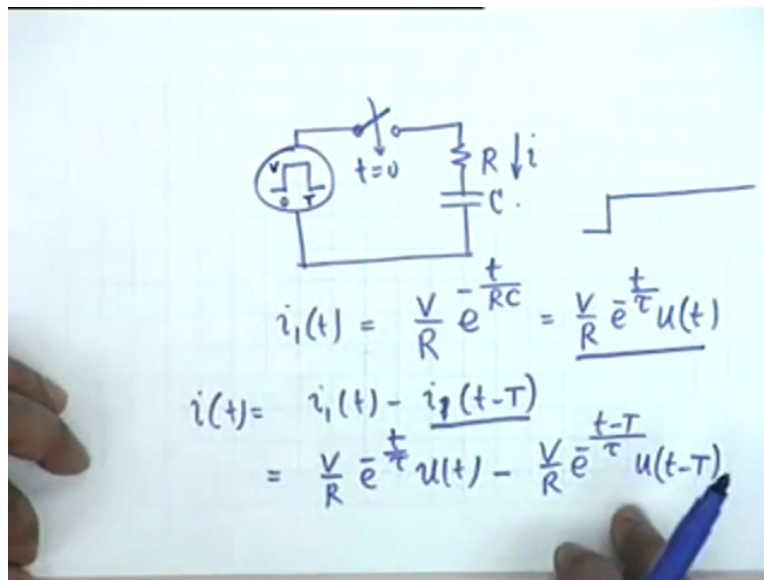 V
0 T
t=0
R ↓i
C
i₁(t) = V/R e^(-t/RC) = V/R e^(-t/τ) u(t)
i(t)= i₁(t) - i₁(t-T)
= V/R e^(-t/τ) u(t) - V/R e^(-(t-T)/τ) u(t-T)